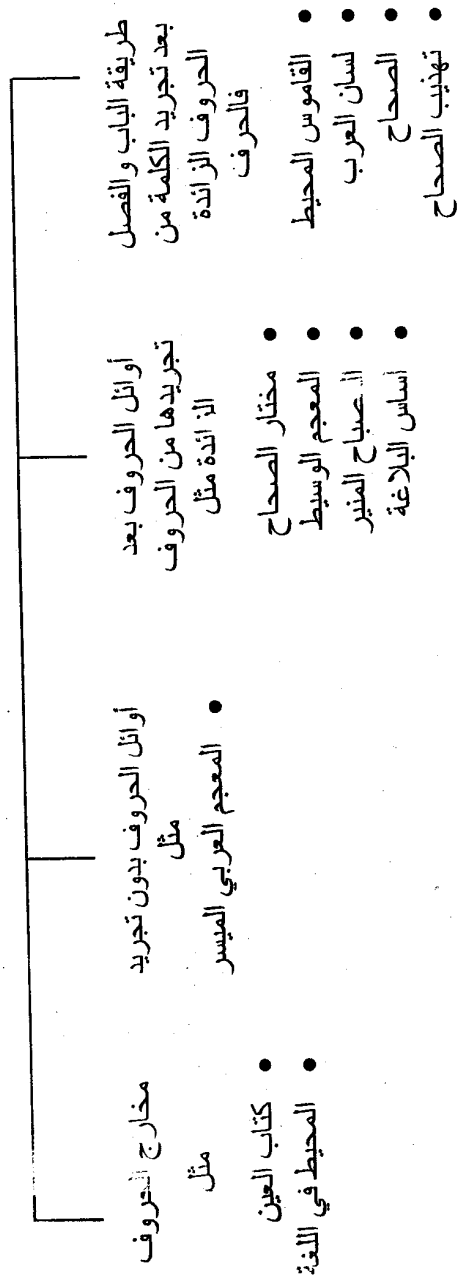 طريقة الباب والفصل
بعد تجريد الكلمة من
الحروف الزائدة
فالحرف
• القاموس المحيط
• لسان العرب
• الصحاح
• تهذيب الصحاح
أوائل الحروف بعد
تجريدها من الحروف
الزائدة مثل
• مختار الصحاح
• المعجم الوسيط
• المصباح المنير
• أساس البلاغة
أوائل الحروف بدون تجريد
مثل
• المعجم العربي الميسر
مخارج الحروف
مثل
• كتاب العين
• المحيط في اللغة